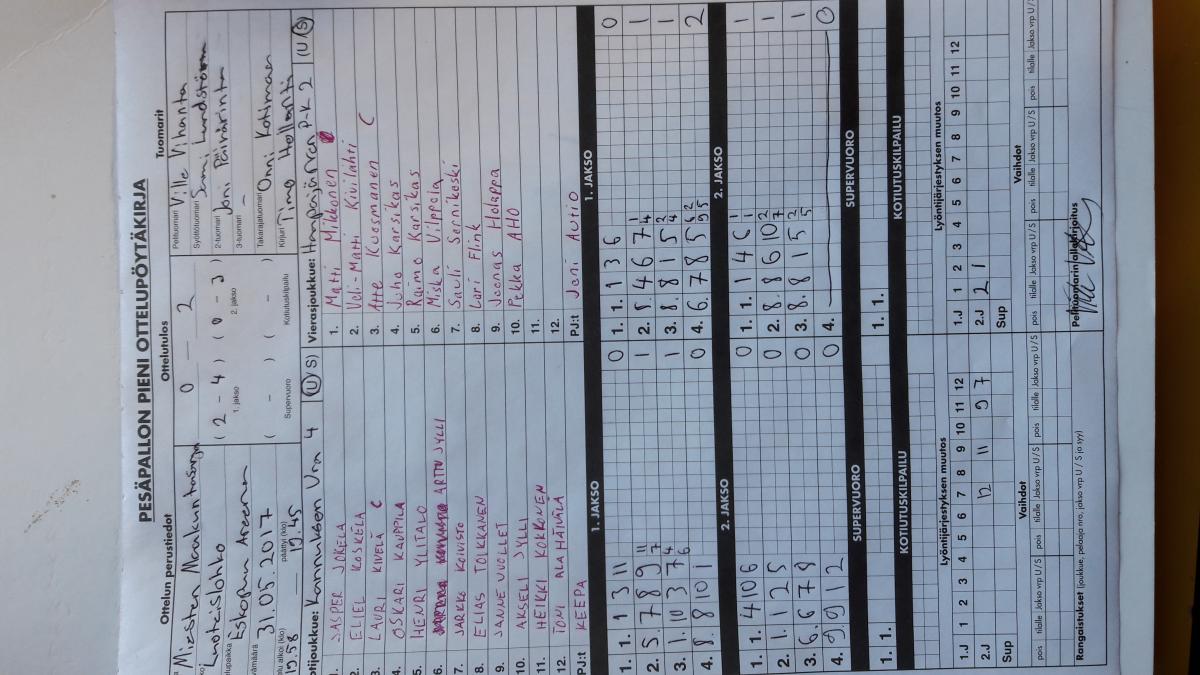 PESÄPALLON PIENI OTTELUPÖYTÄKIRJA
Ottelun perustiedot
Ottelutulos
Tuomarit
Miesten Maakuntasarja
Luoteislohko
Eskopuu Areena
31.05.2017
19.45
päättyi (klo)
0 — 2
( 2 - 4 ) ( 0 - 3 )
1. jakso
2. jakso
( - ) ( - )
Supervuoro
Kotiutuskilpailu
Pelituomari Ville Vihanta
Syöttötuomari Sami Lundström
2-tuomari Joni Päivärinta
3-tuomari -
Takarajatuomari Onni Kotimaa
Kirjuri Timo Hollanti
otijoukkue: Kannuksen Ura 4 (U/S)
1. JASPER JYKELÄ
2. ELIEL KOSKELA
3. LAURI KIVELÄ C
4. OSKARI KAUPPILA
5. HENRI YLITALO
6. ARTTU JYLLI
7. JARKKO KOIVISTO
8. ELIAS TOIKKANEN
9. JANNE VUOLLET
10. AKSELI JYLLI
11. HEIKKI KOKKONEN
12. TONI ALAHÄIVÄLÄ
PJ:t KEEPA
Vierasjoukkue: P-K 2 (U/S)
1. Matti Mikkonen
2. Veli-Matti Kivilahti
3. Atte Kuosmanen C
4. Juho Karsikas
5. Raimo Karsikas
6. Miska Vilppola
7. Sauli Sornikoski
8. Lari Flink
9. Joonas Holappa
10. Pekka AHO
11.
12.
PJ:t Joni Autio
1. JAKSO
1. 1. 1 3 11 0
2. 5. 7 8 9 11 7 1
3. 1. 10 3 7 4 6 1
4. 8. 8 10 1 0
2. JAKSO
1. 1. 4 10 6 0
2. 1. 1 2 5 0
3. 6. 6 7 8 0
4. 9. 9 1 2 0
SUPERVUORO
1. 1.
KOTIUTUSKILPAILU
1. JAKSO
1. 1. 1 3 6 0
2. 5. 4 6 7 4 1 1
3. 8. 8 1 5 4 2 1
4. 6. 7 8 5 9 6 5 2 2
2. JAKSO
1. 1. 1 4 6 1 1
2. 8. 8 6 10 7 2 1
3. 8. 8 1 5 5 2 1
4. 0
SUPERVUORO
1. 1.
KOTIUTUSKILPAILU
Lyöntijärjestyksen muutos
1.J 1 2 3 4 5 6 7 8 9 10 11 12
2.J 12 11 9 7
Sup
Vaihdot
pois tilalle Jakso vrp U / S pois tilalle Jakso vrp U / S pois tilalle Jakso vrp U / S
Lyöntijärjestyksen muutos
1.J 1 2 3 4 5 6 7 8 9 10 11 12
2.J 2 1
Sup
Vaihdot
pois tilalle Jakso vrp U / S pois tilalle Jakso vrp U / S pois tilalle Jakso vrp U / S
Rangaistukset (joukkue, pelaaja nro, jakso vrp U / S ja syy)
Pelituomarin allekirjoitus